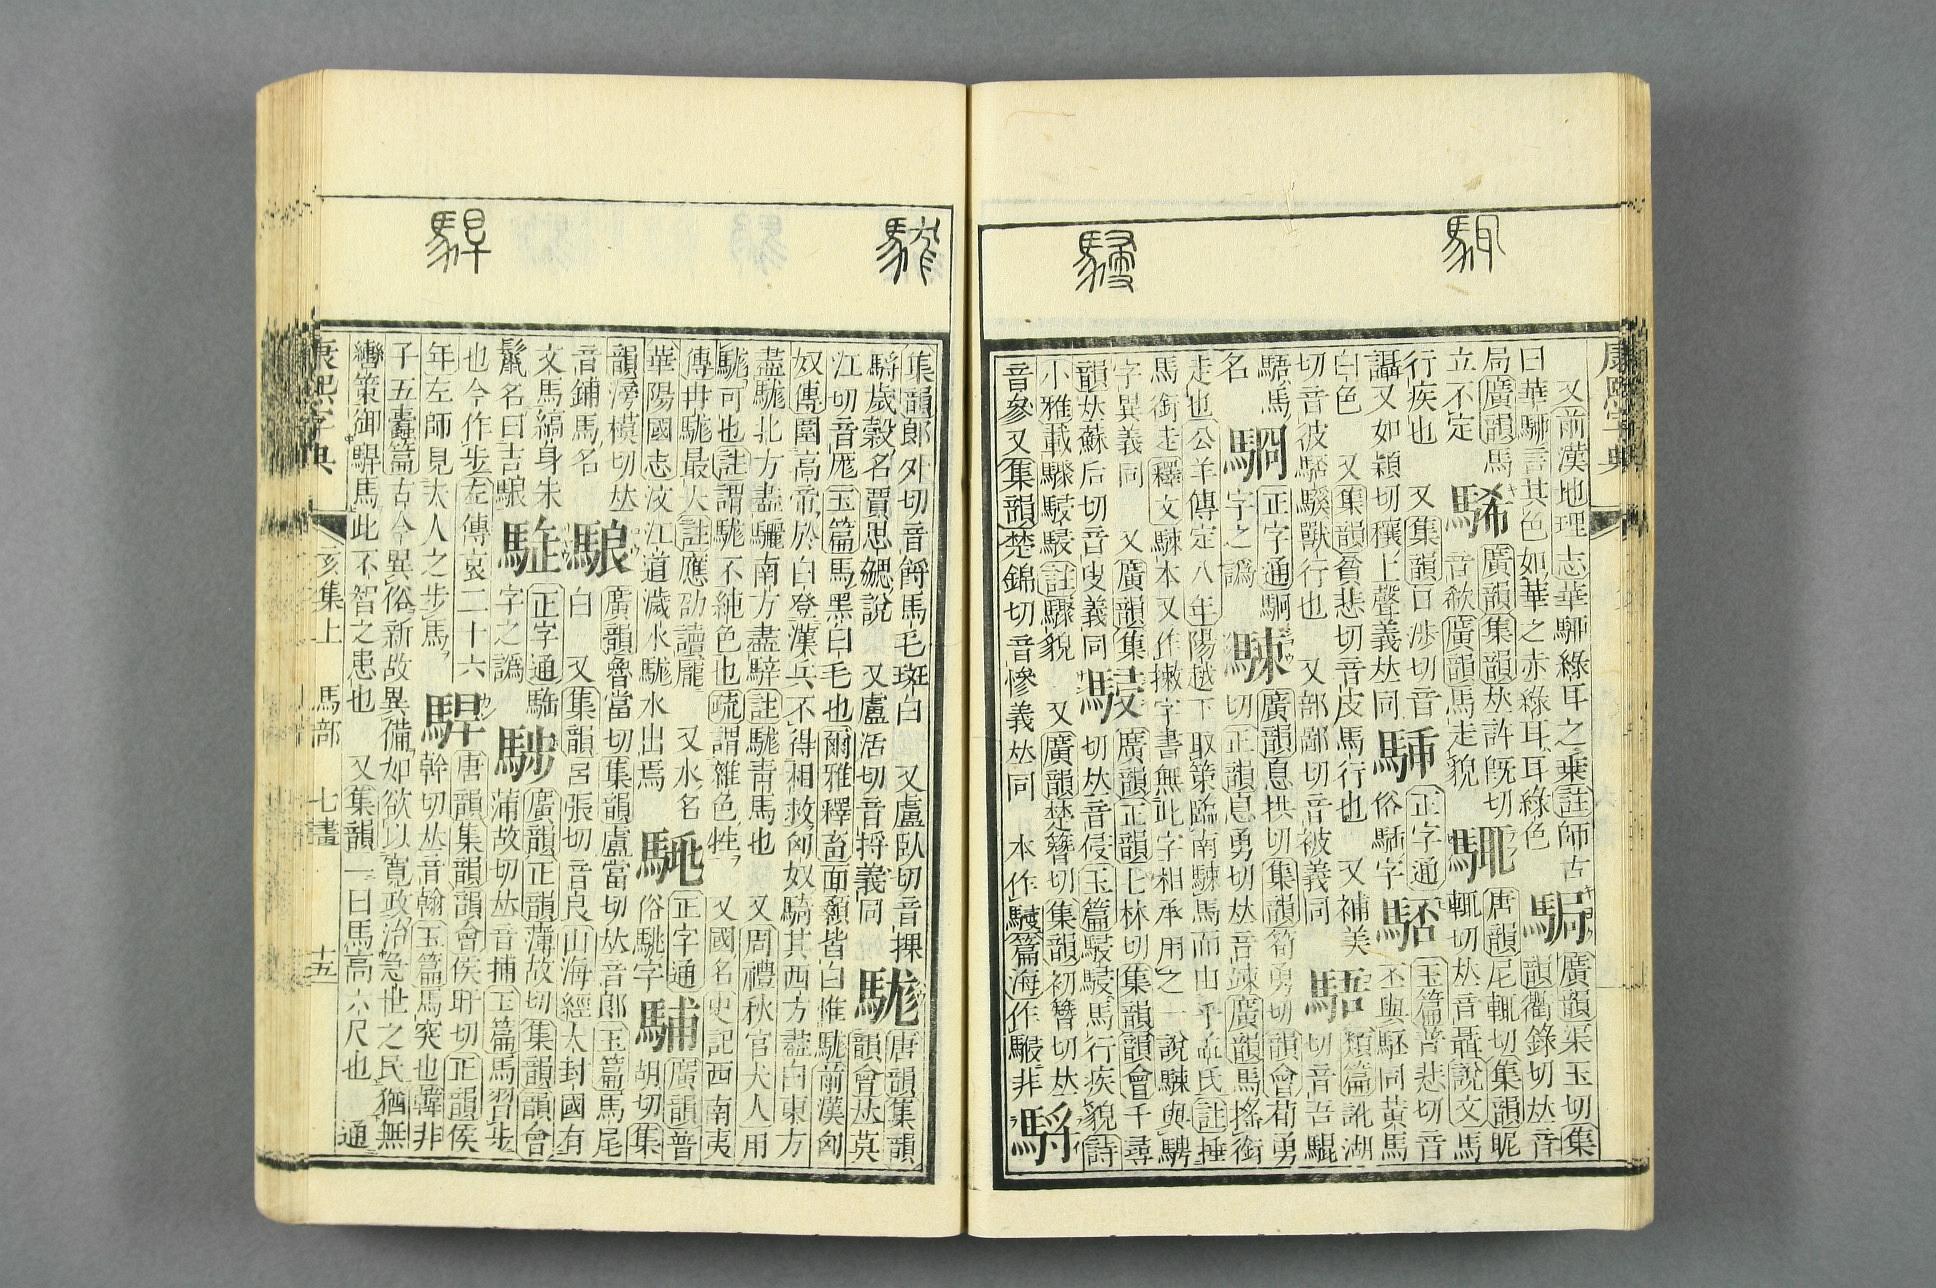 駬
駸
康熙字典
又前漢地理志華騮綠耳之乘註師古 駶 廣韻渠玉切集
曰華騮言其色如華之赤綠耳耳綠色 韻衢錄切𠀤音
局廣韻馬 廣韻集韻𠀤許旣切 唐韻尼輒切集韻昵
立不定 音欷廣韻馬走貌 輒切𠀤音聶說文馬
行疾也 又集韻日涉切音 正字通 玉篇普悲切音
讘又如潁切穰上聲義𠀤同 俗騧字 丕與駓同黃馬
白色 又集韻貧悲切音皮馬行也 又補美 類篇訛湖
切音彼騃獸行也 又部鄙切音被義同 切音吾騉
馬 正字通駉 駷 廣韻息拱切集韻筍勇切韻會荀勇
名 字之譌 切正韻息勇切𠀤音竦廣韻馬搖銜
走也公羊傳定八年陽越下取策臨南駷馬而由乎孟氏註捶
馬銜走釋文駷本又作字書無此字相承用之一說駷與騁
字異義同 又廣韻集 駸 廣韻正韻七林切集韻韻會千尋
韻𠀤蘇后切音叟義同 切𠀤音侵玉篇駸駸馬行疾貌詩
小雅載驟駸駸註驟貌 又廣韻楚簪切集韻初簪切𠀤
音參又集韻楚錦切音墋義𠀤同 本作篇海作非
駹
駻
集韻郎外切音酹馬毛斑白 又盧臥切音摞 駹 唐韻集韻
歲穀名賈思勰說 又盧活切音捋義同 韻會𠀤莫
江切音厖玉篇馬黑白毛也爾雅釋畜面顙皆白惟駹前漢匈
奴傳圍高帝於白登漢兵不得相救匈奴騎其西方盡白東方
盡駹北方盡驪南方盡騂註駹靑馬也 又周禮秋官犬人用
駹可也註謂駹不純色也疏謂雜色牲 又國名史記西南夷
傳冉駹最大註應劭讀龐 又水名 正字通 廣韻普
華陽國志汶江道濊水駹水出焉 俗駣字 胡切集
韻滂模切𠀤 駺 廣韻魯當切集韻盧當切𠀤音郎玉篇馬尾
音鋪馬名 白 又集韻呂張切音良山海經大封國有
文馬縞身朱 正字通 廣韻正韻蒲故切集韻韻會
鬣名曰吉駺 字之譌 蒲故切𠀤音捕玉篇馬習步
也今作步左傳哀二十六 駻 唐韻集韻韻會侯旰切正韻侯
年左師見夫人之步馬 幹切𠀤音翰玉篇馬突也韓非
子五蠹篇古今異俗新故異備如欲以寬政治急世之民猶無
轡策御駻馬此不智之患也 又集韻一曰馬高六尺也 通
康熙字典 亥集上 馬部 七畫 十五